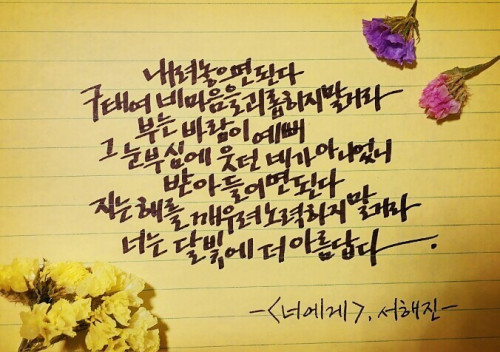 내려놓으면 된다
구태여 네 마음을 괴롭히지 말거라
부는 바람이 예뻐
그 눈부심에 웃던 네가 아니었니
받아들이면 된다
지는 해를 깨우려 노력하지 말거라
너는 달빛에 더 아름답다.
-<너에게>, 서해진-